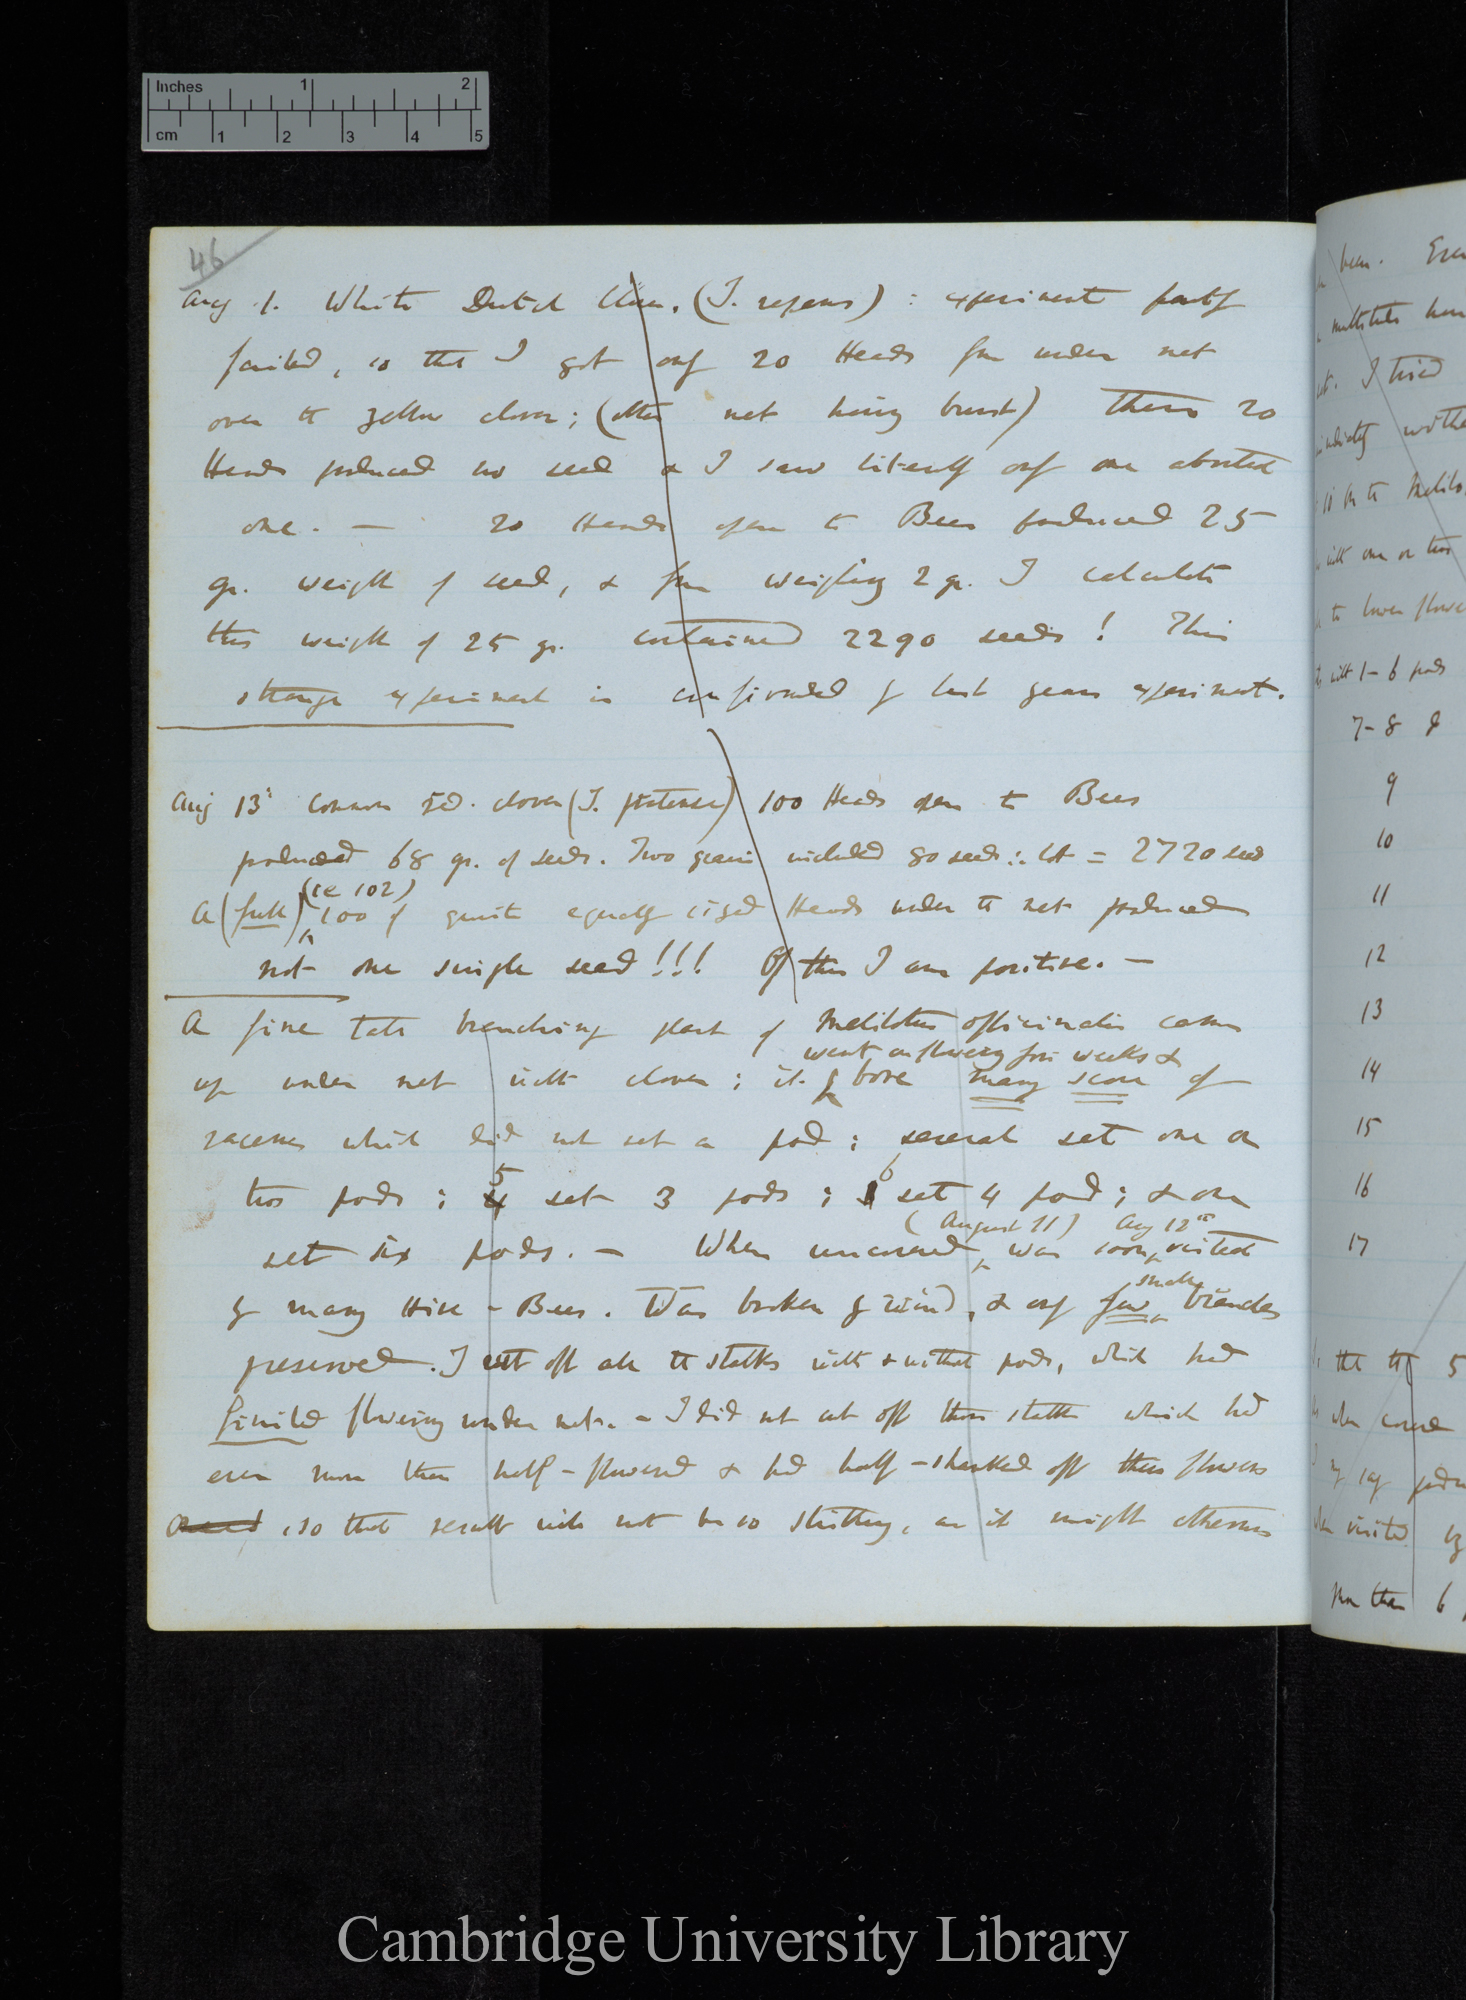 Inches 1 2
cm 1 2 3 4 5
46
Aug 1. White Dutch Clover. (T. repens) : experiment partly
failed, so that I got only 20 Heads from under net
over the yellow clover; (other net having burst) These 20
Heads produced no seed & I saw literally only one aborted
one. — 20 Heads open to Bees produced 25
gr. weight of seed, & from weighing 2 gr. I calculate
this weight of 25 gr. contained 2290 seeds! This
strange experiment is confirmed by last years experiment.
Aug 13th Common red. clover (T. pratense) 100 Heads open to Bees
produced 68 gr. of seeds. Two grains included 80 seeds ∴ lot = 2720 seeds
(ie 102)
A (full) 100 of quite equally sized Heads under the net produced
not one single seed!!! Of this I am positive. —
A fine tall branching plant of Melilotus officinalis came
went on flowering for weeks &
up under net with clover; it bore many score of
racemes which did not set a pod; several set one or
5 6
two pods; 4 set 3 pods; 1 set 4 pod; & one
(August 11) Aug 12th
set six pods. — When uncovered, was soon visited
small
by many Hive-Bees. Was broken by wind, & only few branches
preserved. I cut off all the stalks with & without pods, which had
finished flowering under nets. – I did not cut off those stalks which had
even more than half-flowered & had half-shanked off their flowers
, so that result will not be so striking, as it might otherwise
been. Even
I tried
one or two
lower flowers
with 1–6 pods
7–8
9
10
11
12
13
14
15
16
17
that the 5
when covered
visited by
More than 6
Cambridge University Library